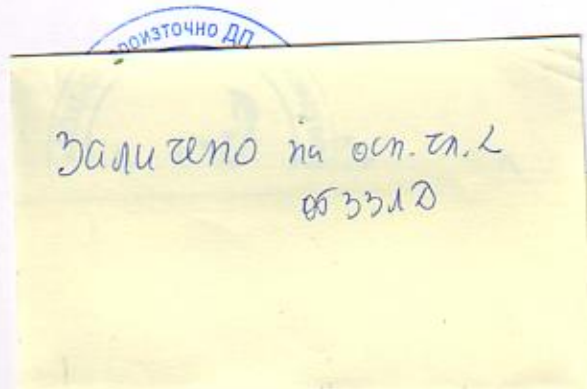 роизточно ДП
Заличено на осн. чл. 2
от ЗЗЛД